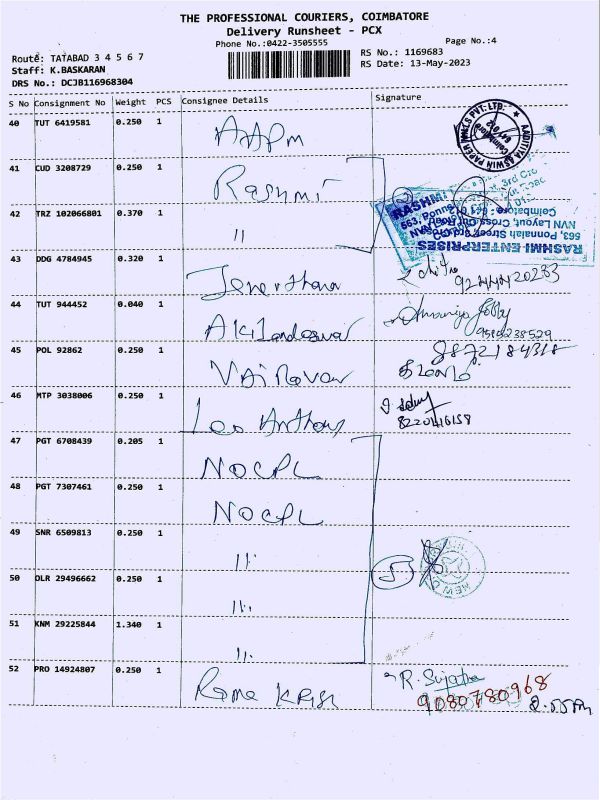 THE PROFESSIONAL COURIERS, COIMBATORE
Delivery Runsheet - PCX
Phone No.:0422-3505555
Page No.:4
Route: TATABAD 3 4 5 6 7
RS No.: 1169683
Staff: K.BASKARAN
RS Date: 13-May-2023
DRS No.: DCJB116968304
S No Consignment No Weight PCS Consignee Details Signature
40 TUT 6419581 0.250 1
41 CUD 3208729 0.250 1 Rashmi
42 TRZ 102066801 0.370 1 "
RASHMI ENTERPRISES
563, Ponnaiah Street, Cross Cut Road
NVN Layout,
Coimbatore
43 DDG 4784945 0.320 1
44 TUT 944452 0.040 1
9589238529
45 POL 92862 0.250 1 VAiRavar
8872184318
46 MTP 3038006 0.250 1 Leo Anthony
47 PGT 6708439 0.205 1 NOCPL
48 PGT 7307461 0.250 1 NOCPL
49 SNR 6509813 0.250 1 "
50 DLR 29496662 0.250 1 "
5
51 KNM 29225844 1.340 1 "
52 PRO 14924807 0.250 1 Rama KRish
R. Sujatha
9080780968